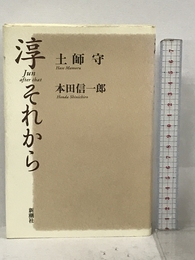 淳
Jun
after that
それから
土師 守
Hase Mamoru
本田信一郎
Honda Shinichiro
新潮社